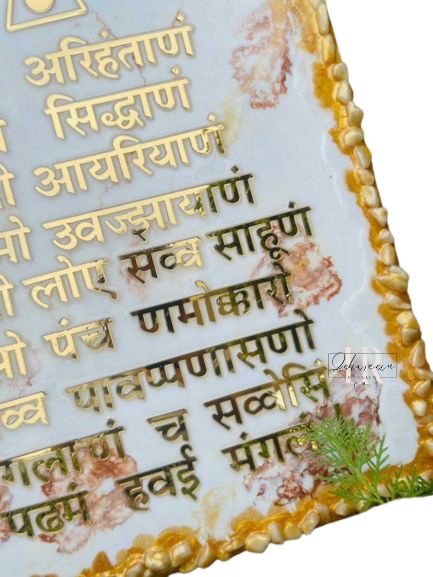 अरिहंताणं
सिद्धाणं
आयरियाणं
मो उवज्झायाणं
लोए सव्व साहूणं
पंच णमोक्कारो
व्व पावप्पणासणो
गलाणं च सव्वेसिं
पढमं हवई मंगलं